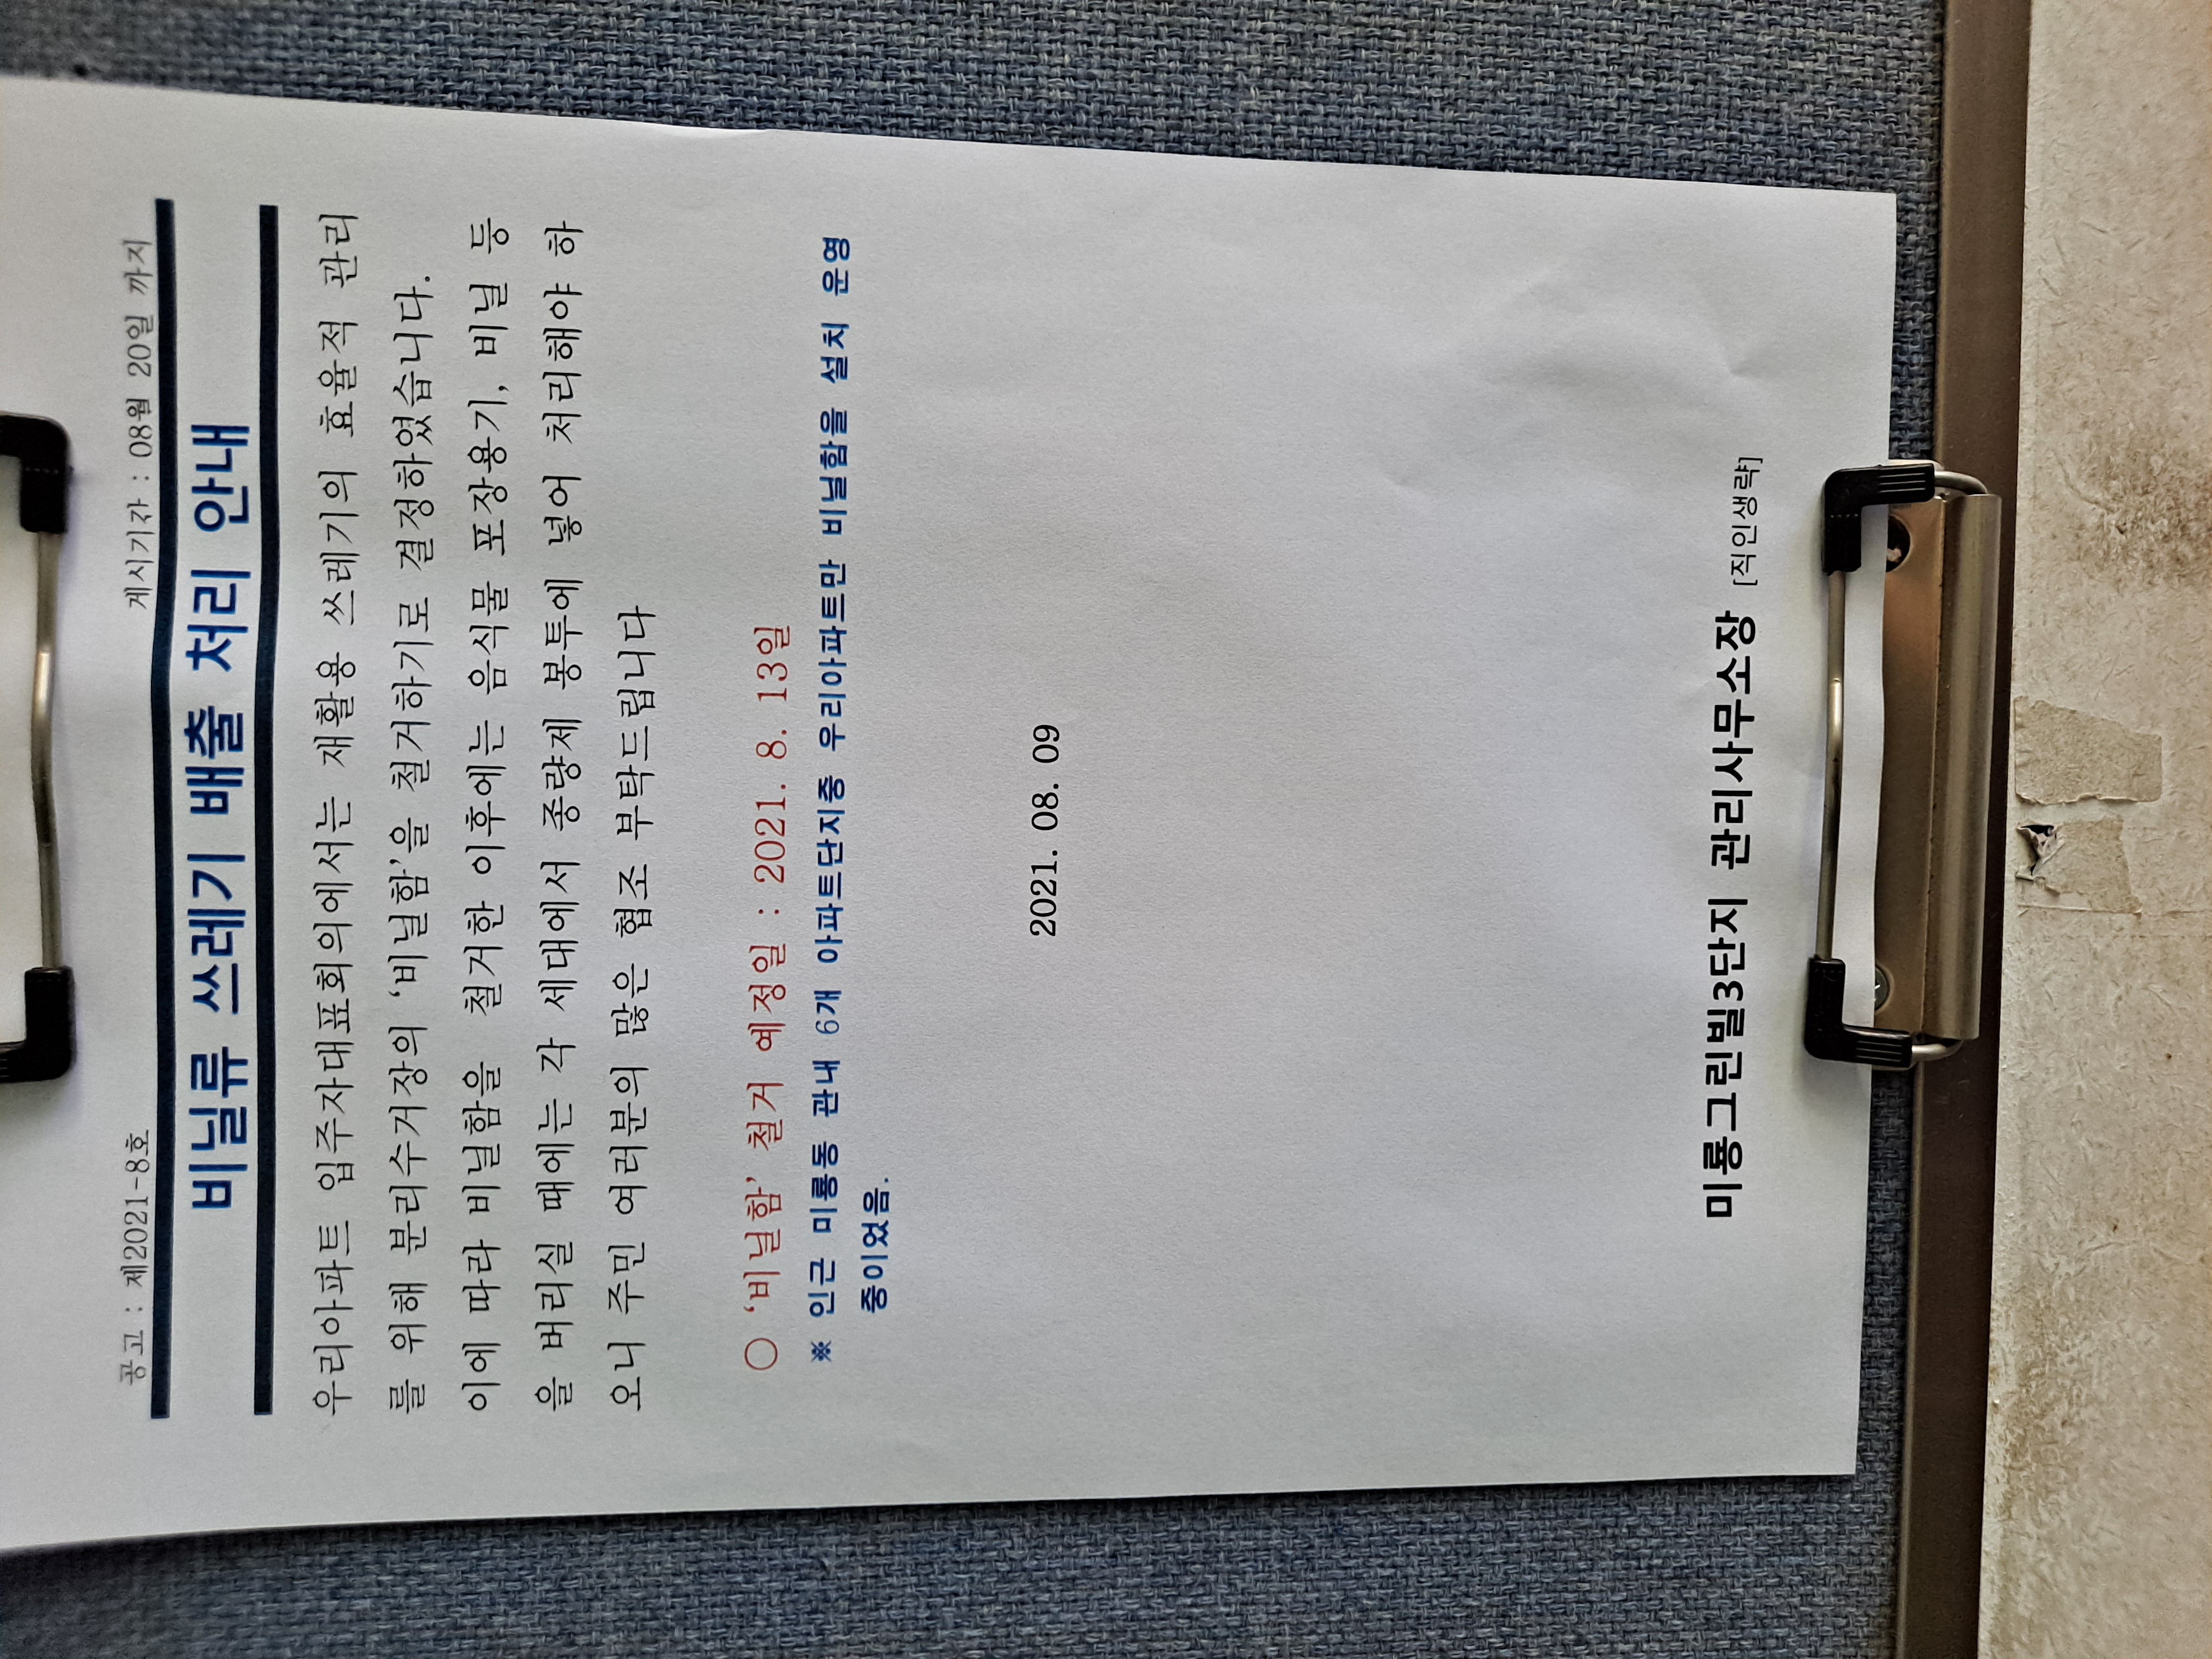 공고 : 제2021-8호 게시기간 : 08월 20일 까지
비닐류 쓰레기 배출 처리 안내
우리아파트 입주자대표회의에서는 재활용 쓰레기의 효율적 관리
를 위해 분리수거장의 ‘비닐함’을 철거하기로 결정하였습니다.
이에 따라 비닐함을 철거한 이후에는 음식물 포장용기, 비닐 등
을 버리실 때에는 각 세대에서 종량제 봉투에 넣어 처리해야 하
오니 주민 여러분의 많은 협조 부탁드립니다
○ ‘비닐함’ 철거 예정일 : 2021. 8. 13일
※ 인근 미룡동 관내 6개 아파트단지중 우리아파트만 비닐함을 설치 운영
중이었음.
2021. 08. 09
미룡그린빌3단지 관리사무소장 [직인생략]